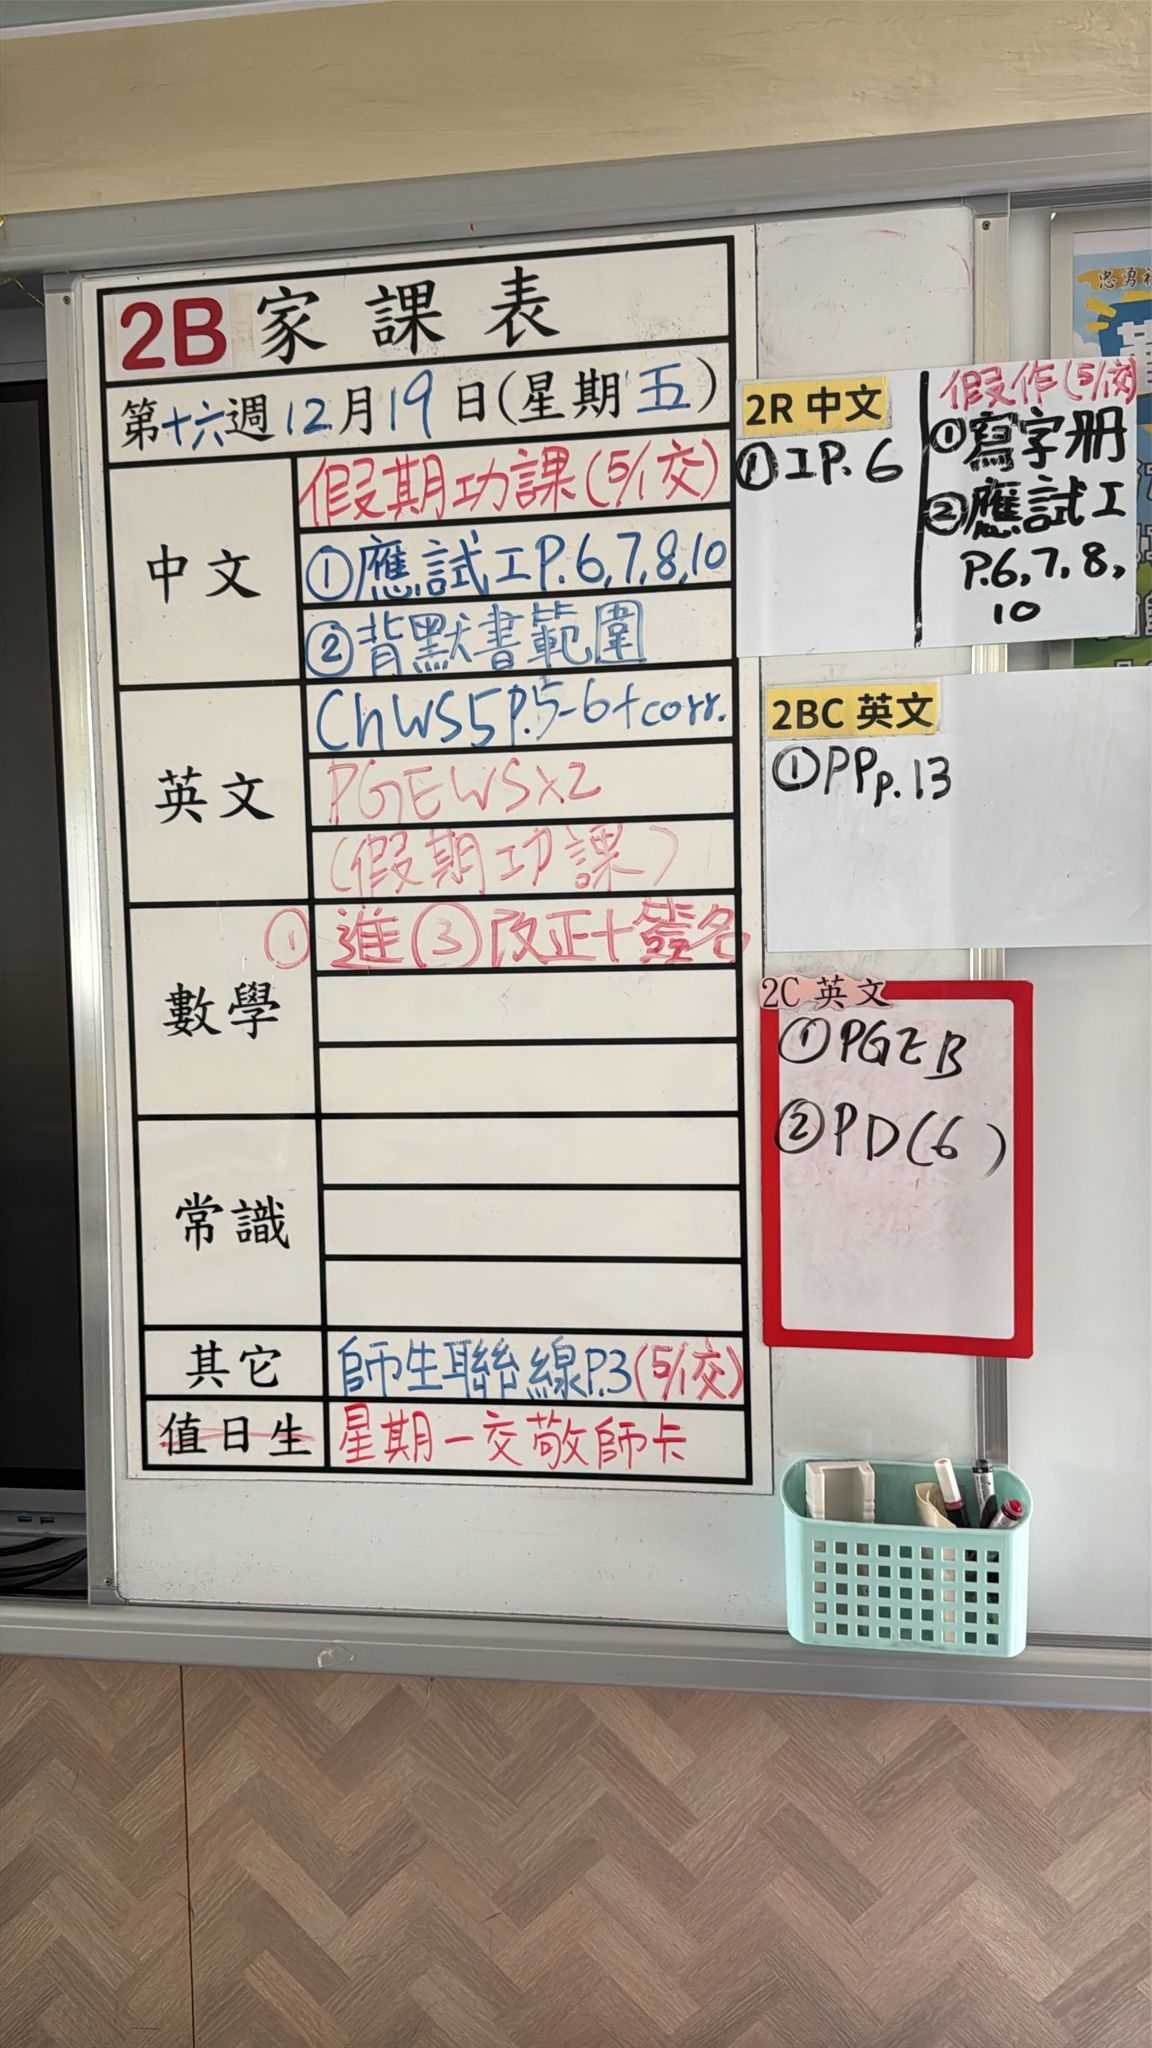 2B 家課表
第十六週12月19日(星期五)
中文
假期功課(5/1交)
①應試工P.6,7,8,10
②背默書範圍
英文
ChWS5P.5-6+corr.
PGEWSx2
(假期功課)
數學
①進③改正+簽名
常識
其它
師生聯絡線P.3(5/1交)
值日生
星期一交敬師卡
2R 中文
①工P.6
假作(5/1交)
①寫字册
②應試工
P.6,7,8,
10
2BC 英文
①PPp.13
2C 英文
①PGEB
②PD(6)
忠勇